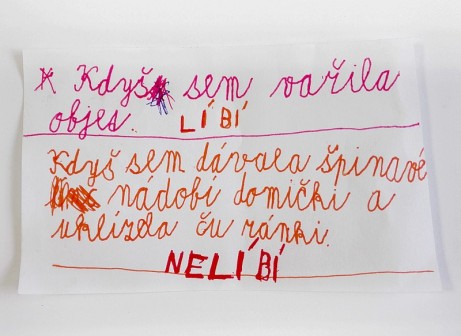 Když sem vařila
objes. LÍBÍ
Když sem dávala špinavé
nádobí domički a
uklízela ču ránki.
NELÍBÍ